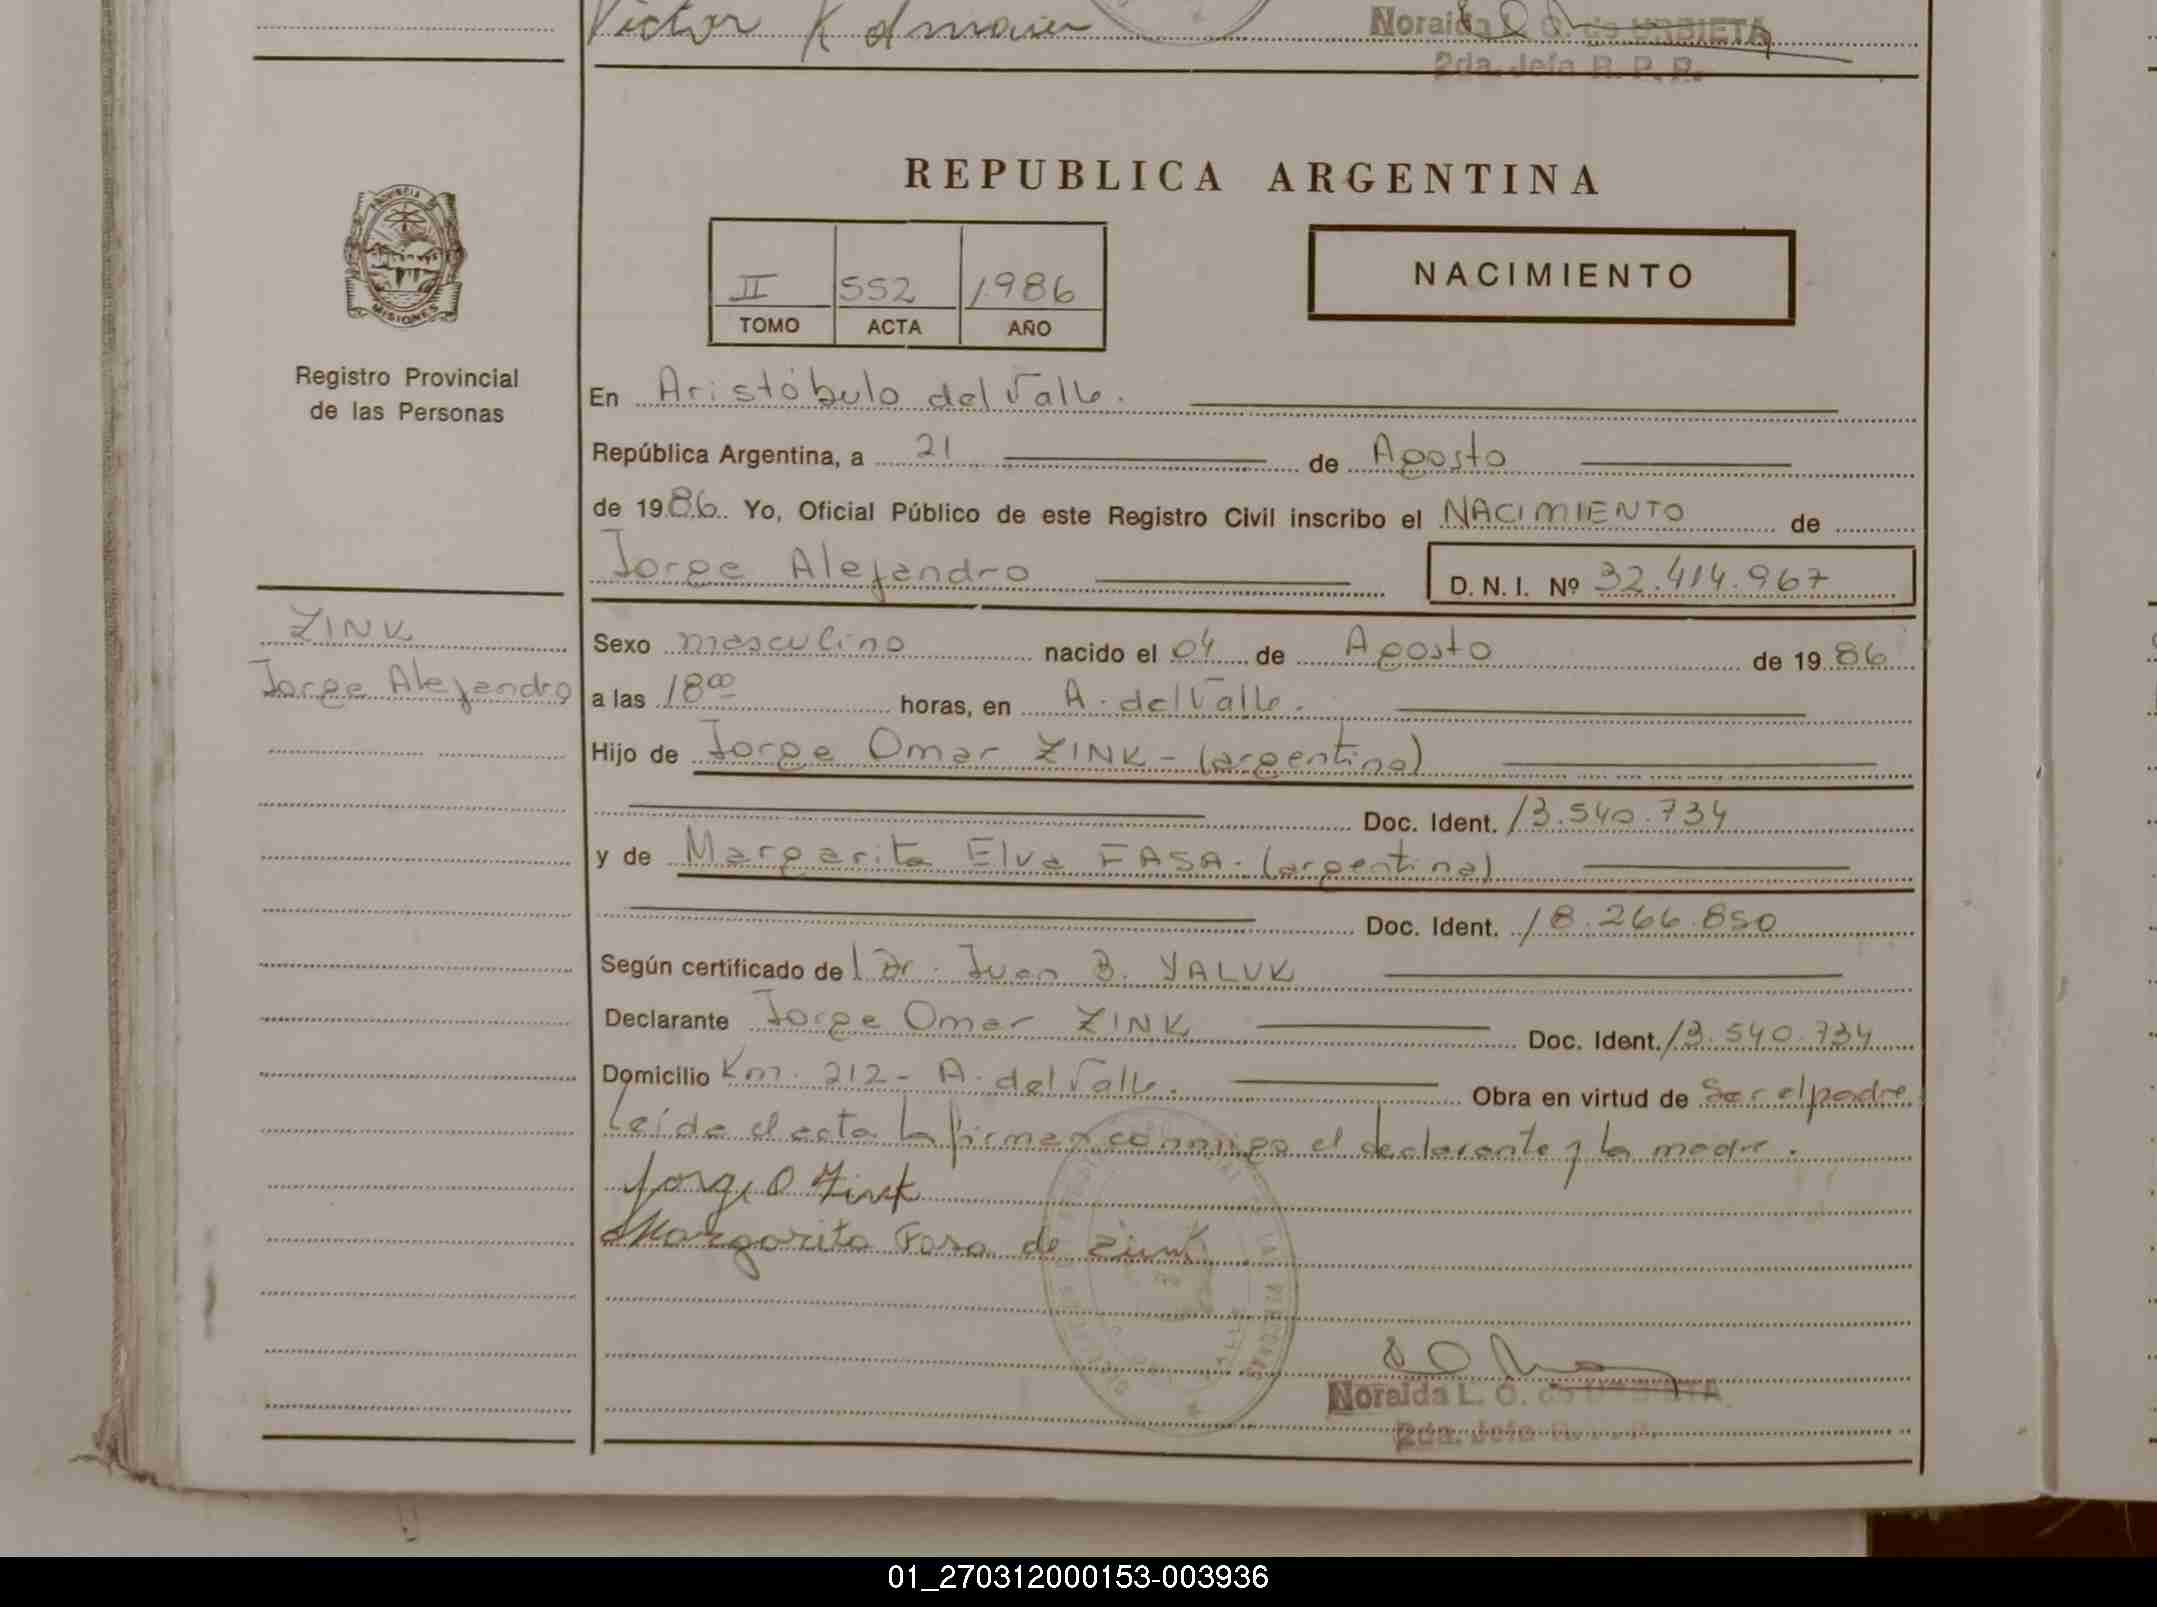 Victor K
Noraida L. O. de URBIETA
2da. Jefa R. P. P.
PROVINCIA DE
MISIONES
Registro Provincial
de las Personas
REPUBLICA ARGENTINA
II 552 1986
TOMO ACTA AÑO
NACIMIENTO
En Aristóbulo del Valle.
República Argentina, a 21 de Agosto
de 1986. Yo, Oficial Público de este Registro Civil inscribo el NACIMIENTO de
Jorge Alejandro D. N. I. Nº 32.414.967
ZINK
Jorge Alejandro
Sexo masculino nacido el 04 de Agosto de 1986
a las 18⁰⁰ horas, en A. del Valle.
Hijo de Jorge Omar ZINK - (argentino)
Doc. Ident. 13.540.734
y de Margarita Elva FASA - (argentina)
Doc. Ident. 18.266.850
Según certificado del Dr. Juan B. YALUK
Declarante Jorge Omar ZINK Doc. Ident. 13.540.734
Domicilio Km. 212 - A. del Valle. Obra en virtud de Ser el padre
Leída el acta la firman conmigo el declarante y la madre.
Jorge O Zink
Margarita Fasa de Zink
Noraida L. O. de URBIETA
2da. Jefa R. P. P.
01_270312000153-003936